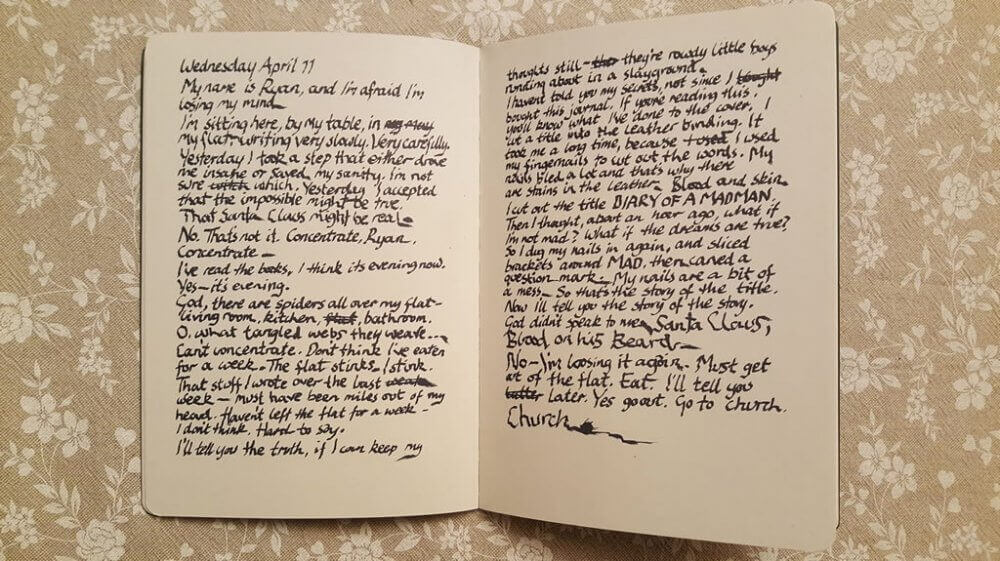 Wednesday April 11
My name is Ryan, and I'm afraid I'm
losing my mind
I'm sitting here, by my table, in
my flat. writing very slowly. Very carefully.
Yesterday I took a step that either drove
me insane or saved my sanity. I'm not
sure which. Yesterday I accepted
that the impossible might be true.
That Santa Claus might be real
No. Thats not it. Concentrate, Ryan.
Concentrate –
I've read the books, I think its evening now.
Yes – its evening.
God, there are spiders all over my flat-
living room, kitchen, flat, bathroom.
O, what tangled webs they weave...
Can't concentrate. Don't think I've eaten
for a week. The flat stinks. I stink.
That stuff I wrote over the last
week – must have been miles out of my
head. Haven't left the flat for a week –
I don't think. Hard to say.
I'll tell you the truth, if I can keep my
thoughts still – they're rowdy little boys
running about in a slayground.
I havent told you my secrets, not since I bought
bought this journal. If you're reading this,
you'll know what I've done to the cover. I
cut a title into the leather binding. It
took me a long time, because I used I used
my fingernails to cut out the words. My
nails bled a lot and that's why there
are stains in the leather. Blood and skin
I cut out the title DIARY OF A MADMAN.
Then I thought, about an hour ago, what if
I'm not mad? What if the dreams are true?
So I dug my nails in again, and sliced
brackets around MAD, then carved a
question mark. My nails are a bit of
a mess – So thats the story of the title.
Now I'll tell you the story of the story.
God didn't speak to me. Santa Claus,
Blood on his Beard –
No – I'm loosing it again. Must get
out of the flat. Eat. I'll tell you
later. Yes go out. Go to church.
Church